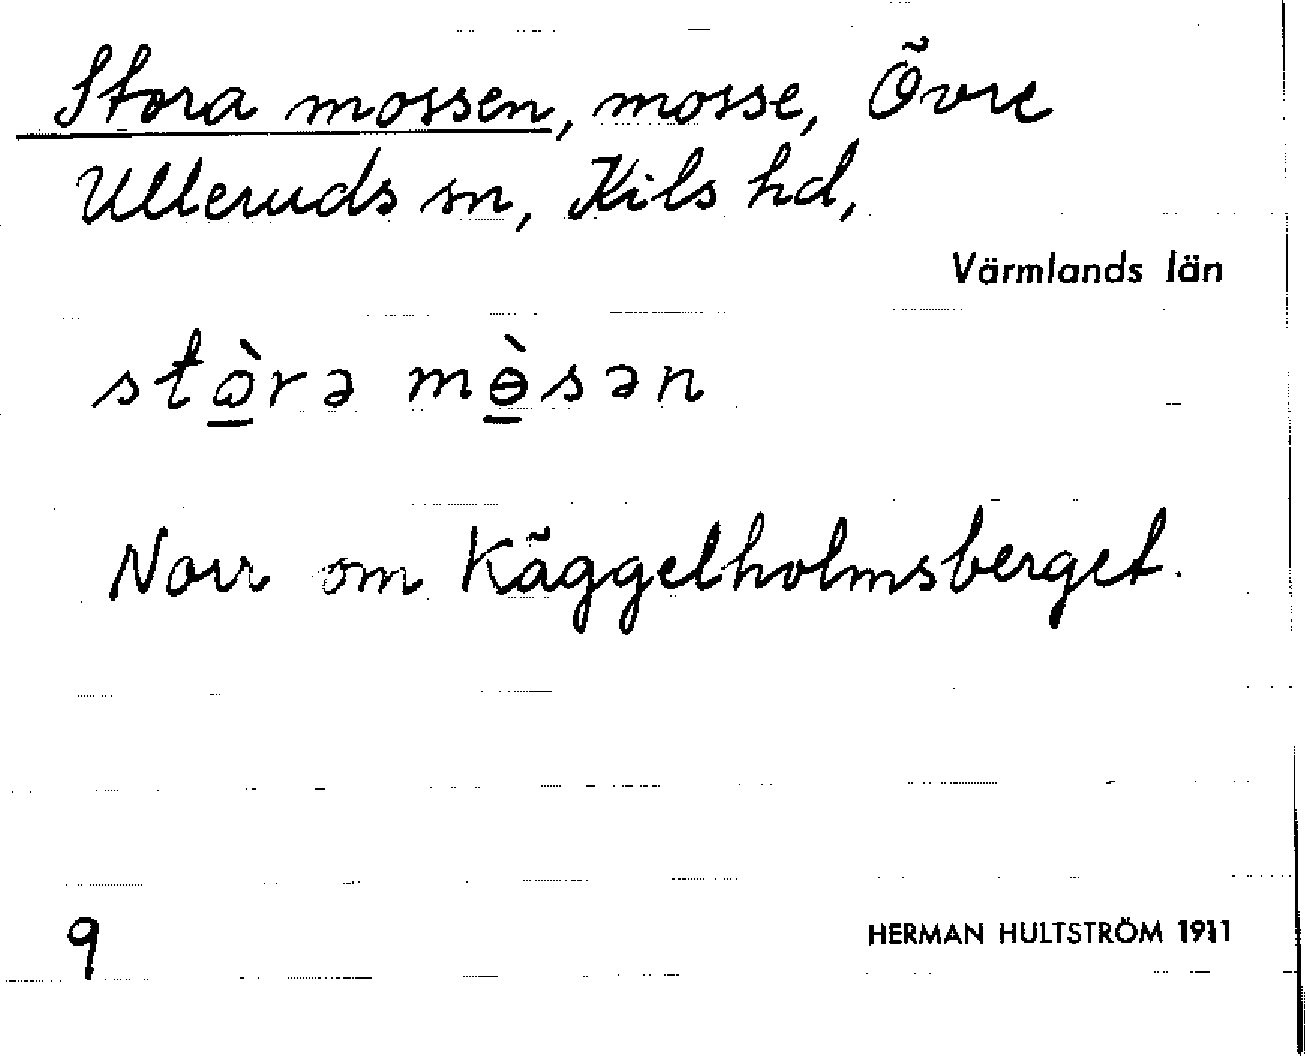 Stora mossen, mosse, Övre
Ulleruds sn, Kils hd,
Värmlands län
stὼ̲rə mɵ̲̀sən
Norr om Käggelholmsberget.
9
HERMAN HULTSTRÖM 1911